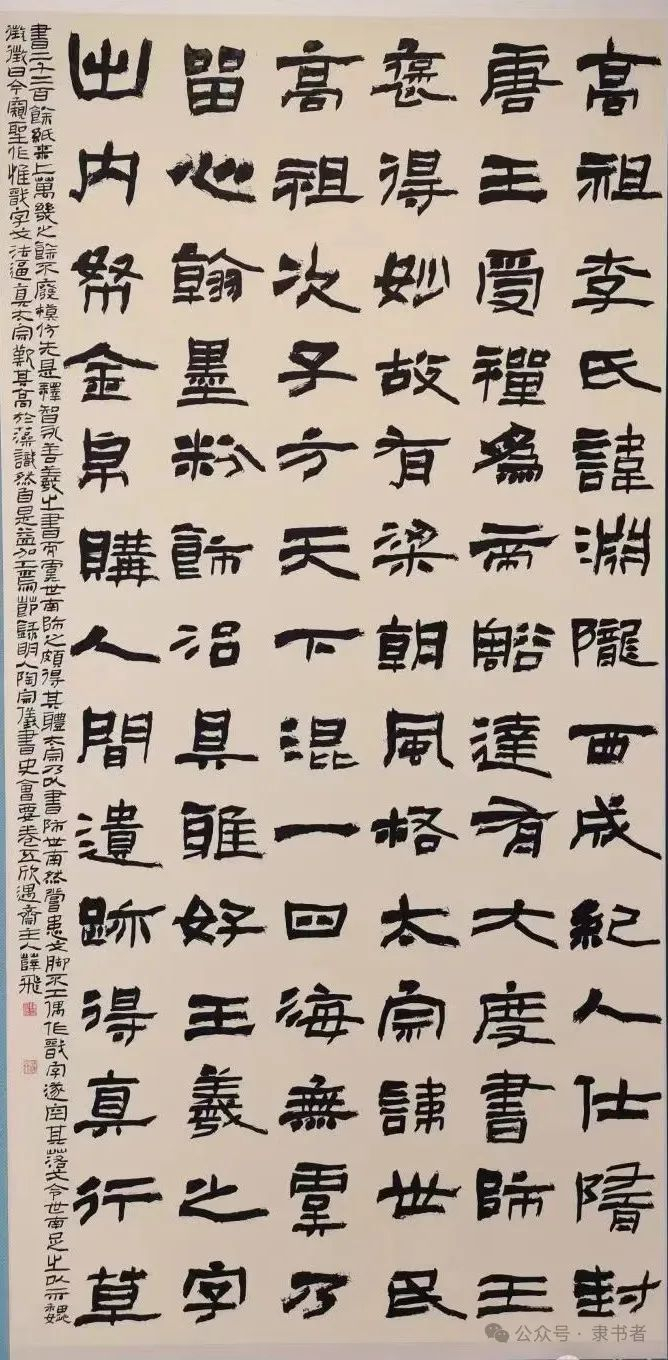 高祖李氏諱淵隴西成紀人仕隋封
唐王受禪爲帝豁達有大度書師王
褒得妙故有梁朝風格太宗諱世民
高祖次子方天下混一四海無虞乃
留心翰墨粉飾治具雅好王羲之字
出内帑金帛購人間遺跡得真行草
書二千二百餘紙來上萬幾之餘不廢模仿先是釋智永善羲之書而虞世南師之頗得其體太宗乃以書師世南然嘗患戈脚不工偶作戩字遂空其落戈令世南足之以示魏
徵徵曰今窺聖作惟戩字戈法逼真太宗歎其高於藻識然自是益加工焉節錄明人陶宗儀書史會要卷五欣遇齋主人薛飛
公众号 · 隶书者